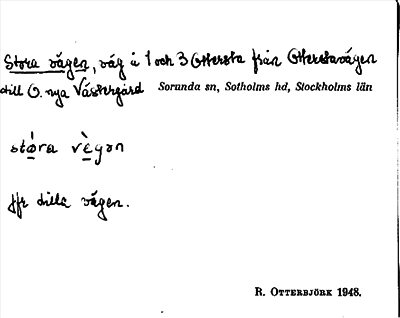 Stora vägen, väg å 1 och 3 Ottersta från Otterstavägen
till O. nya Västergård Sorunda sn, Sotholms hd, Stockholms län
stó̱ra vè̱gən
Jfr lilla vägen.
R. OTTERBJÖRK 1948.